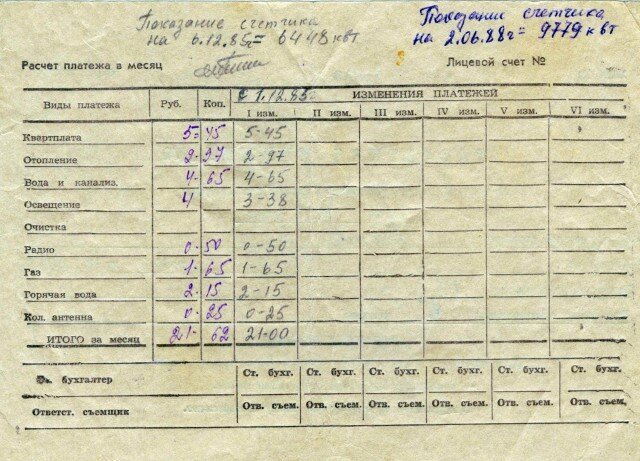 Показание счетчика
на 6.12.85г = 6448 квт
Показании счетчика
на 2.06.88г = 9779 квт
Расчет платежа в месяц
Лицевой счет №
Виды платежа Руб. Коп. с 1.12.85г. ИЗМЕНЕНИЯ ПЛАТЕЖЕЙ
I изм. II изм. III изм. IV изм. V изм. VI изм.
Квартплата 5- 45 5-45
Отопление 2- 97 2-97
Вода и канализ. 4- 65 4-65
Освещение 4 3-38
Очистка
Радио 0- 50 0-50
Газ 1- 65 1-65
Горячая вода 2- 15 2-15
Кол. антенна 0- 25 0-25
ИТОГО за месяц 21- 62 21-00
бухгалтер Ст. бухг. Ст. бухг. Ст. бухг. Ст. бухг. Ст. бухг. Ст. бухг.
Ответст. съемщик Отв. съем. Отв. съем. Отв. съем. Отв. съем. Отв. съем. Отв. съем.